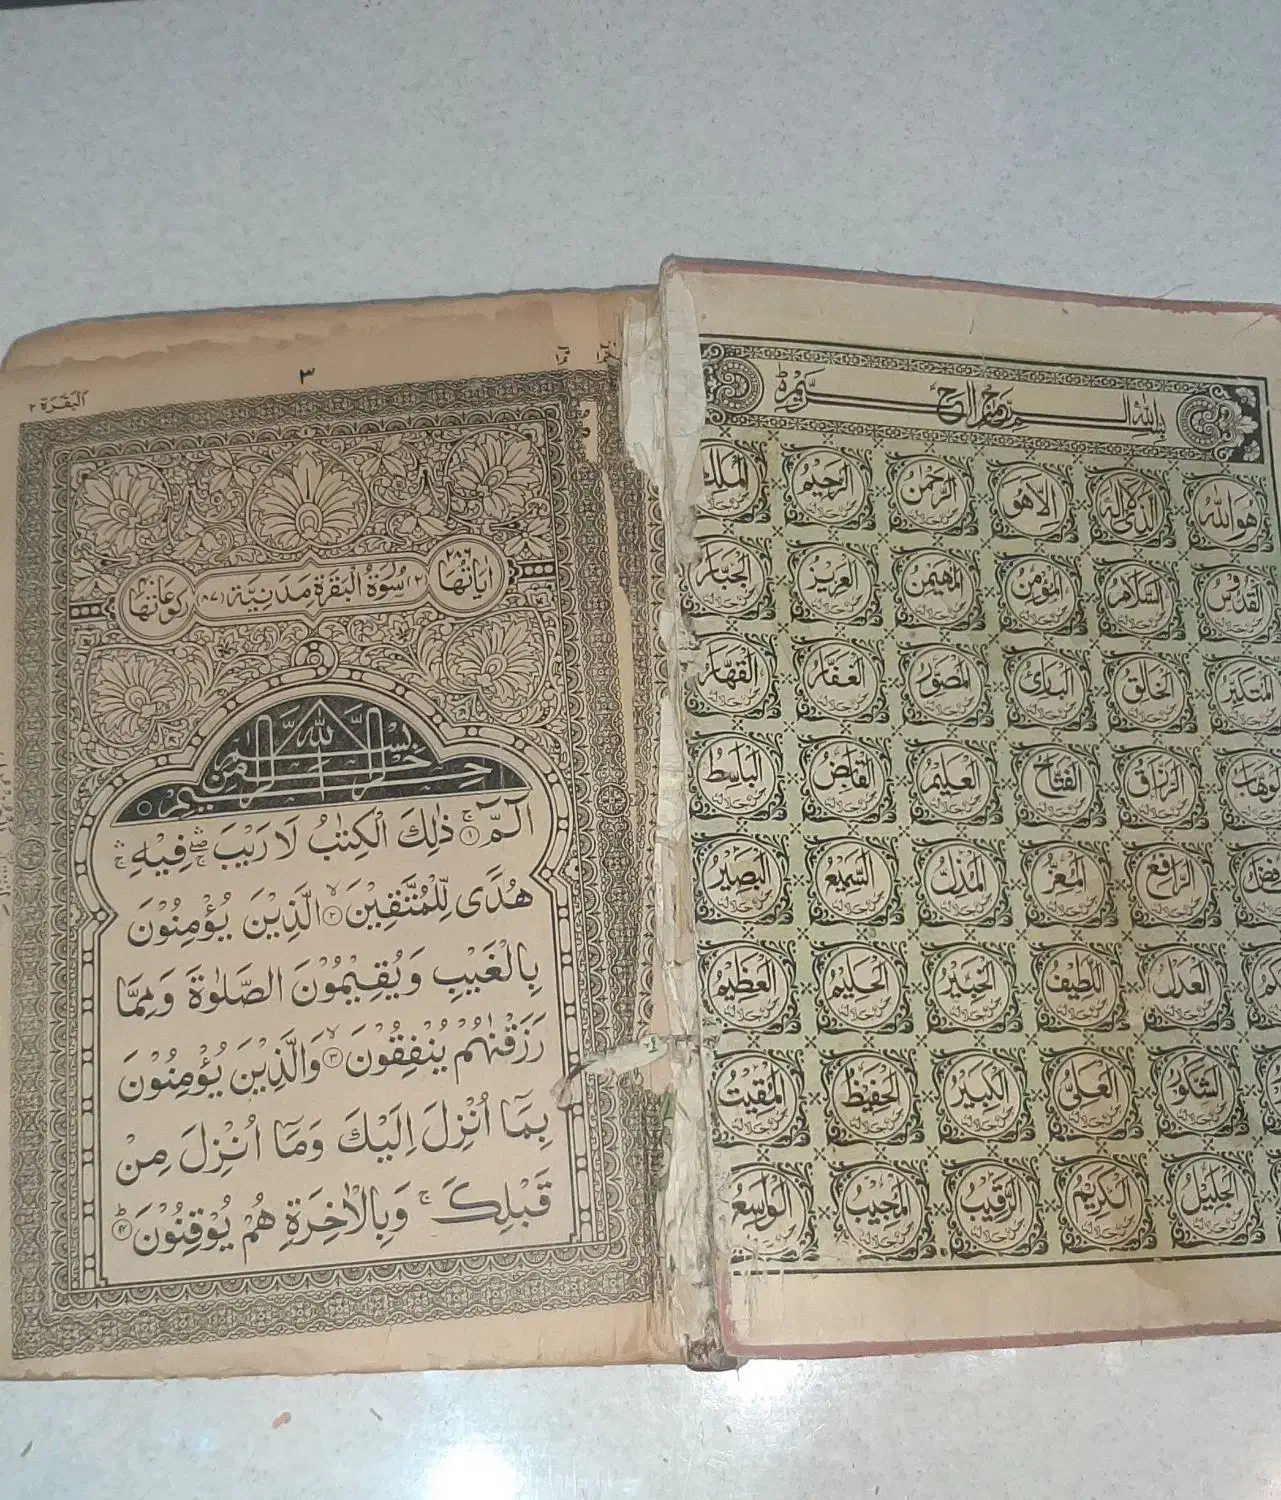 بسم الله الرحمن الرحيم
هو الله الذى لا اله الا هو الرحمن الرحيم الملك
القدوس السلام المؤمن المهيمن العزيز الجبار
المتكبر الخالق البارئ المصور الغفار القهار
الرزاق الفتاح العليم القابض الباسط
الرافع المعز المذل السميع البصير
العدل اللطيف الخبير الحليم العظيم
الشكور العلى الكبير الحفيظ المقيت
الجليل الكريم الرقيب المجيب الواسع
٣
البقرة ٢
اياتها ٢٨٦
(٢) سُوَرةُ الْبَقَرَةِ مَدَنِيَّةٌ (٨٧)
ركوعاتها
بسم الله الرحمن الرحيم
الٓمّٓ ۚ ۝١ ذٰلِكَ الْكِتٰبُ لَا رَيْبَ ۛ ۚ فِيْهِ ۛ ۚ
هُدًى لِّلْمُتَّقِيْنَ ۙ ۝٢ الَّذِيْنَ يُؤْمِنُوْنَ
بِالْغَيْبِ وَيُقِيْمُوْنَ الصَّلٰوةَ وَمِمَّا
رَزَقْنٰهُمْ يُنْفِقُوْنَ ۙ ۝٣ وَالَّذِيْنَ يُؤْمِنُوْنَ
بِمَآ اُنْزِلَ اِلَيْكَ وَمَآ اُنْزِلَ مِنْ
قَبْلِكَ ۚ وَبِالْاٰخِرَةِ هُمْ يُوْقِنُوْنَ ؕ ۝٤